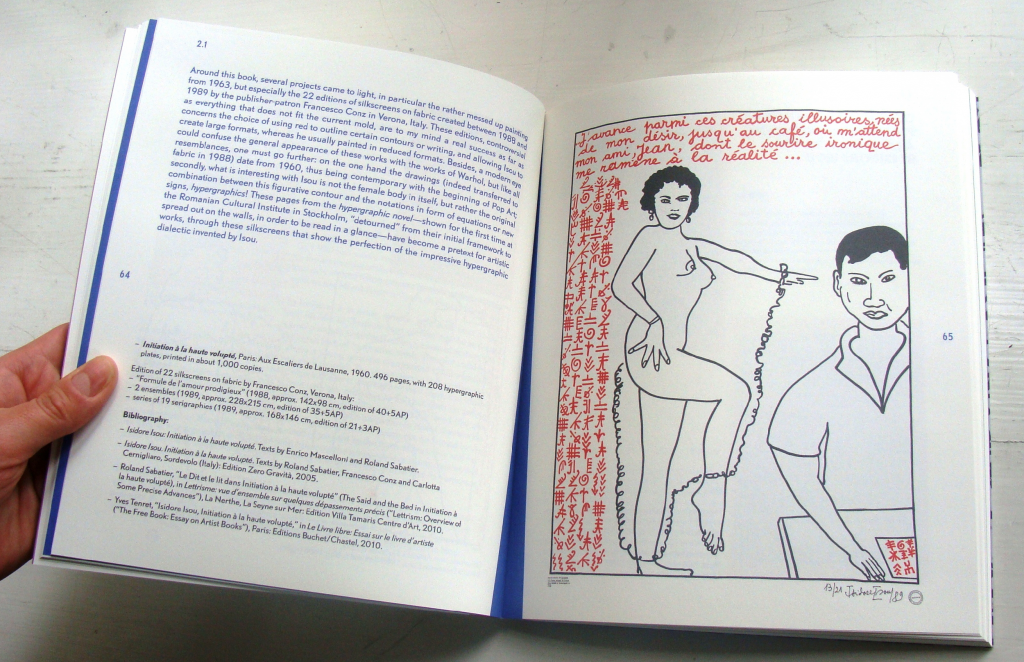 2.1
Around this book, several projects came to light, in particular the rather messed up painting
from 1963, but especially the 22 editions of silkscreens on fabric created between 1988 and
1989 by the publisher-patron Francesco Conz in Verona, Italy. These editions, controversial
as everything that does not fit the current mold, are to my mind a real success as far as
concerns the choice of using red to outline certain contours or writing, and allowing Isou to
create large formats, whereas he usually painted in reduced formats. Besides, a modern eye
could confuse the general appearance of these works with the works of Warhol, but like all
resemblances, one must go further: on the one hand the drawings (indeed transferred to
fabric in 1988) date from 1960, thus being contemporary with the beginning of Pop Art;
secondly, what is interesting with Isou is not the female body in itself, but rather the original
combination between this figurative contour and the notations in form of equations or new
signs, hypergraphics! These pages from the hypergraphic novel—shown for the first time at
the Romanian Cultural Institute in Stockholm, "detourned" from their initial framework to
spread out on the walls, in order to be read in a glance—have become a pretext for artistic
works, through these silkscreens that show the perfection of the impressive hypergraphic
dialectic invented by Isou.
64
– Initiation à la haute volupté, Paris: Aux Escaliers de Lausanne, 1960. 496 pages, with 208 hypergraphic
plates, printed in about 1,000 copies.
Edition of 22 silkscreens on fabric by Francesco Conz, Verona, Italy:
– "Formule de l'amour prodigieux" (1988, approx. 142x98 cm, edition of 40+5AP)
– 2 ensembles (1989, approx. 228x215 cm, edition of 35+5AP)
– series of 19 serigraphies (1989, approx. 168x146 cm, edition of 21+3AP)
Bibliography:
– Isidore Isou: Initiation à la haute volupté. Texts by Enrico Mascelloni and Roland Sabatier.
– Isidore Isou. Initiation à la haute volupté. Texts by Roland Sabatier, Francesco Conz and Carlotta
Cernigliaro, Sordevolo (Italy): Edition Zero Gravità, 2005.
– Roland Sabatier, "Le Dit et le lit dans Initiation à la haute volupté" (The Said and the Bed in Initiation à
la haute volupté), in Lettrisme: vue d'ensemble sur quelques dépassements précis ("Lettrism: Overview of
Some Precise Advances"), La Nerthe, La Seyne sur Mer: Edition Villa Tamaris Centre d'Art, 2010.
– Yves Tenret, "Isidore Isou, Initiation à la haute volupté," in Le Livre libre: Essai sur le livre d'artiste
("The Free Book: Essay on Artist Books"), Paris: Editions Buchet/Chastel, 2010.
J'avance parmi ces créatures illusoires, nées
de mon désir, jusqu'au café, où m'attend
mon ami, Jean, dont le sourire ironique
me ramène à la réalité ...
65
13/21 Isidore Isou/89